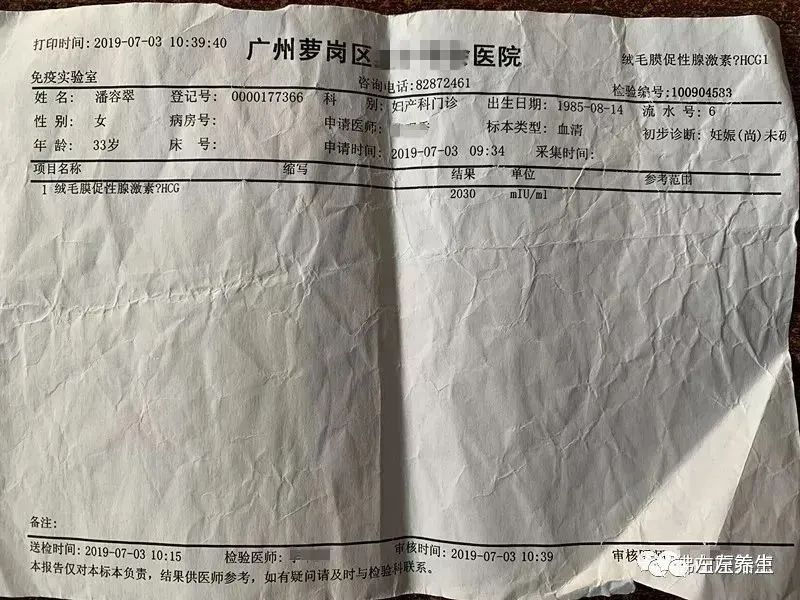 打印时间: 2019-07-03 10:39:40
广州萝岗区 医院
绒毛膜促性腺激素?HCG1
免疫实验室
咨询电话:82872461
检验编号:100904533
姓 名: 潘容翠 登记号: 0000177366 科 别: 妇产科门诊 出生日期: 1985-08-14 流 水 号: 6
性 别: 女 病房号: 申请医师: 标本类型: 血清 初步诊断: 妊娠(尚)未
年 龄: 33岁 床 号: 申请时间: 2019-07-03 09:34 采集时间:
项目名称 缩写 结果 单位 参考范围
1 绒毛膜促性腺激素?HCG 2030 mIU/ml
备注:
送检时间: 2019-07-03 10:15 检验医师: 审核时间: 2019-07-03 10:39 审核
本报告仅对本标本负责, 结果供医师参考, 如有疑问请及时与检验科联系。